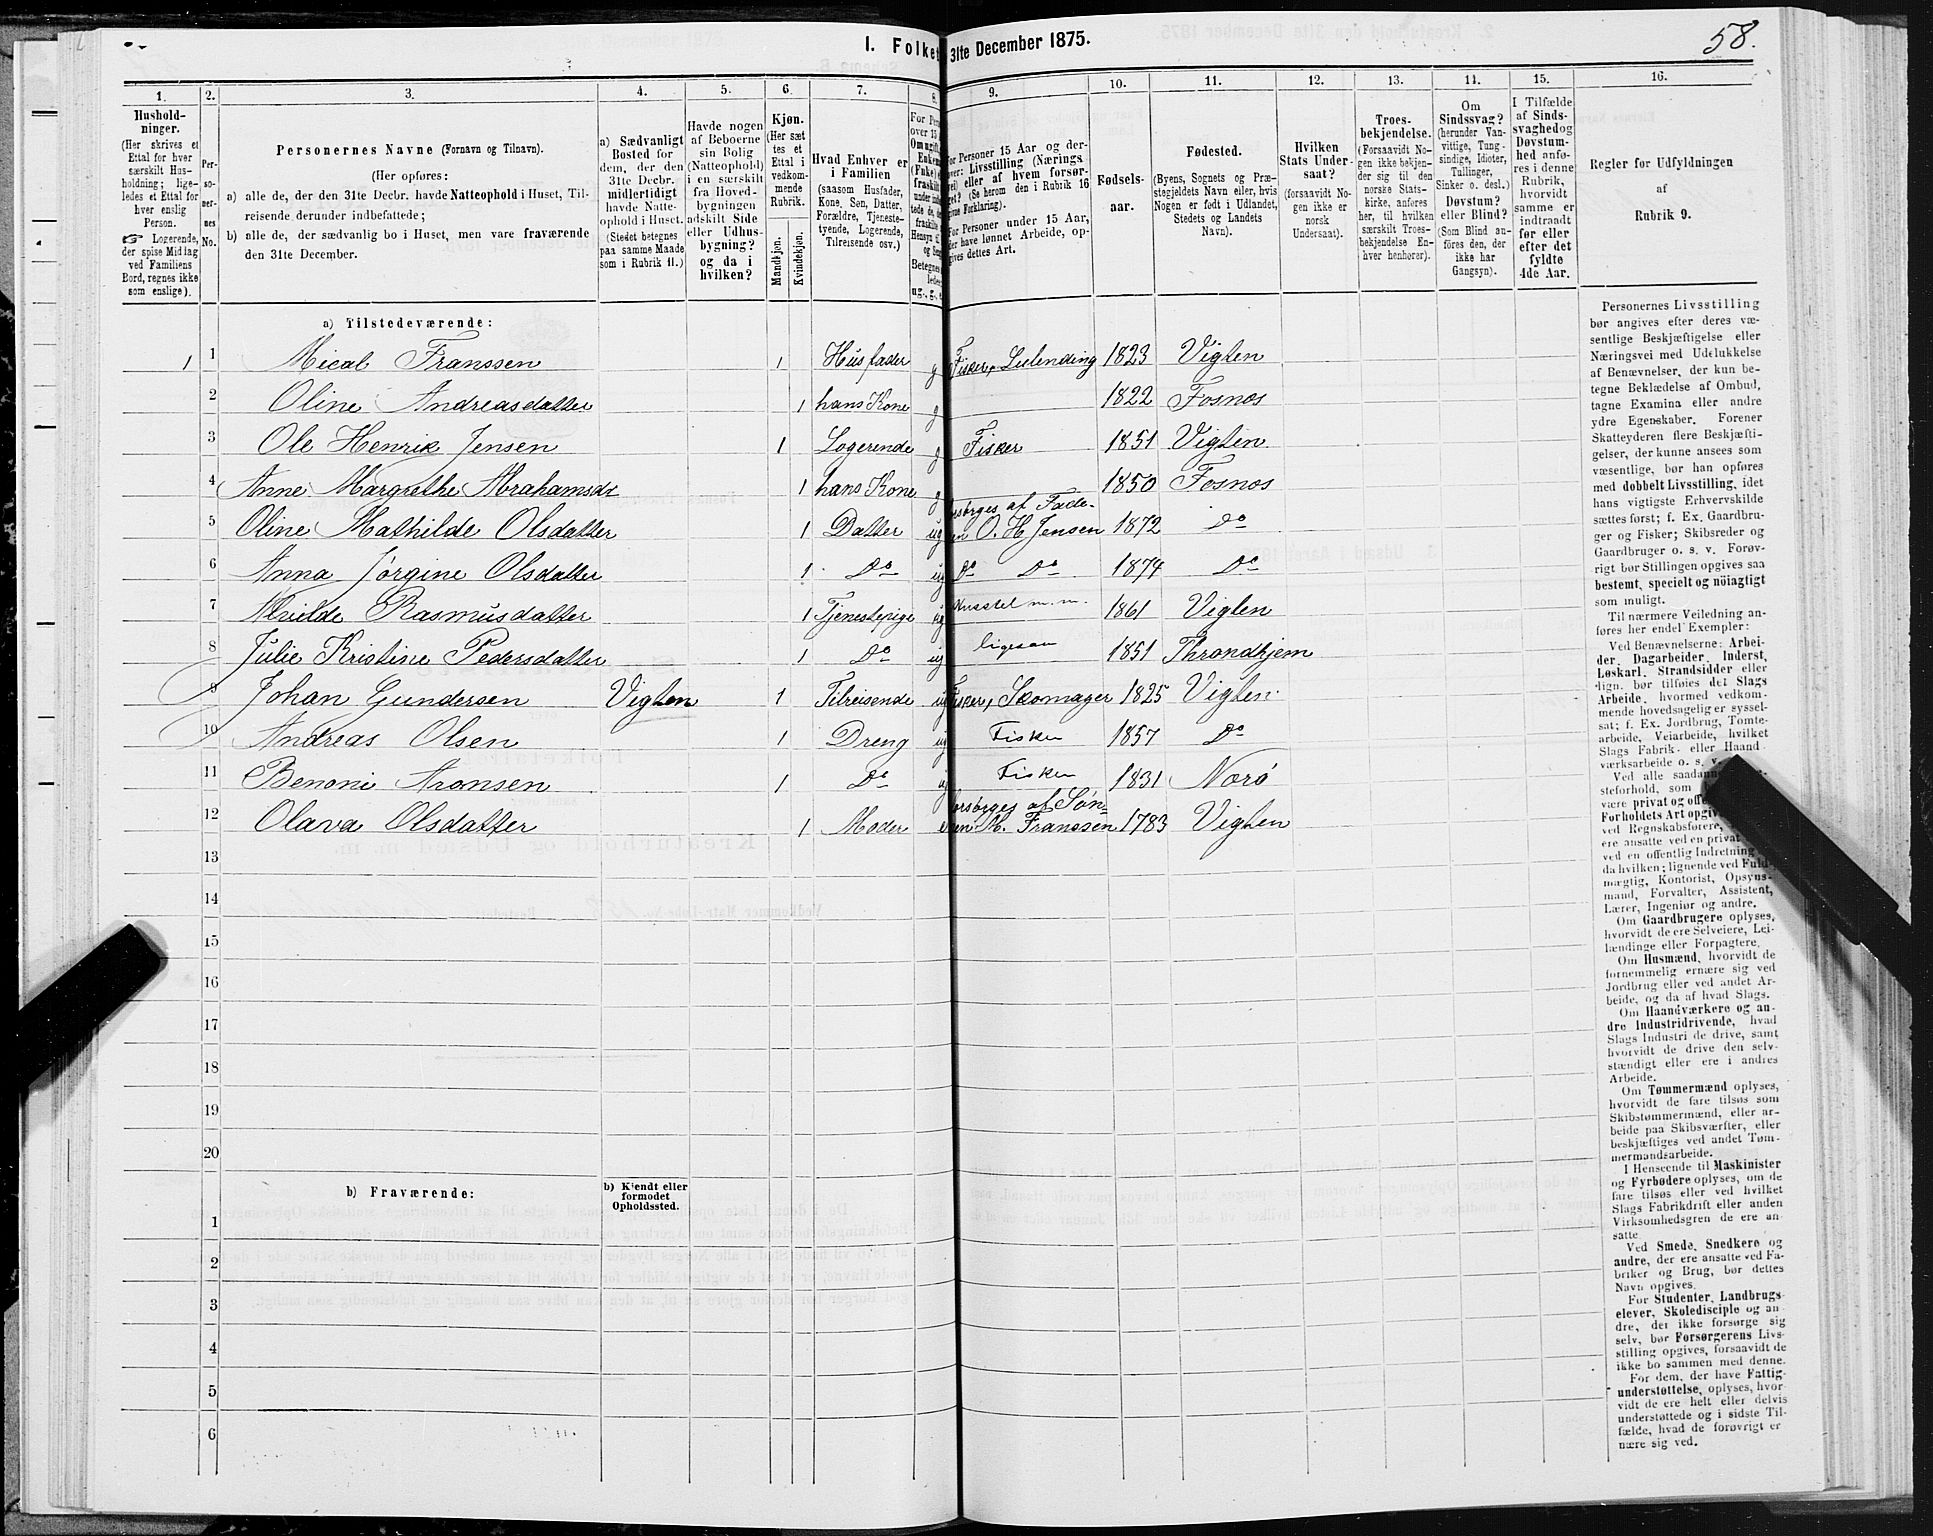 58.
I. Folke
31te December 1875.
1.
2.
3.
4.
5.
6.
7.
8.
9.
10.
11.
12.
13.
14.
15.
16.
Hushold-
ninger.
(Her skrives et
Ettal for hver
særskilt Hus-
holdning; lige-
ledes et Ettal for
hver enslig
Person.
☞ Logerende,
der spise Middag
ved Familiens
Bord, regnes ikke
som enslige).
Per-
so-
ner-
nes
No.
Personernes Navne (Fornavn og Tilnavn).
(Her opføres:
a) alle de, der den 31te Decbr. havde Natteophold i Huset, Til-
reisende derunder indbefattede;
b) alle de, der sædvanlig bo i Huset, men vare fraværende
den 31te December.
a) Sædvanligt
Bosted for
dem, der den
31te Decbr.
midlertidigt
havde Natte-
ophold i Huset.
(Stedet betegnes
paa samme Maade
som i Rubrik 11.)
Havde nogen
af Beboerne
sin Bolig
(Natteophold)
i en særskilt
fra Hoved-
bygningen
adskilt Side
eller Udhus-
bygning?
og da i
hvilken?
Kjøn.
(Her sæt
tes et
Ettal i
vedkom-
mende
Rubrik.
Mandkjøn.
Kvindekjøn.
Hvad Enhver er
i Familien
(saasom Husfader,
Kone, Søn, Datter,
Forældre, Tjeneste-
tyende, Logerende,
Tilreisende osv.)
For Personer 15 Aar og der-
over: Livsstilling (Nærings
vei) eller af hvem forsør-
get? (Se herom den i Rubrik 16
givne Forklaring).
For Personer under 15 Aar,
der have lønnet Arbeide, op-
gives dettes Art.
Fødsels-
aar.
Fødested.
(Byens, Sognets og Præ-
stegjeldets Navn eller, hvis
Nogen er født i Udlandet,
Stedets og Landets
Navn).
Hvilken
Stats Under-
saat?
(forsaavidt No-
gen ikke er
norsk
Undersaat).
Troes-
bekjendelse.
(Forsaavidt No-
gen ikke bekjen-
der sig til den
norske Stats-
kirke, anføres
her, til hvilken
særskilt Troes-
bekjendelse En-
hver henhører).
Om
Sindssvag?
(herunder Van-
vittige, Tung-
sindige, Idioter,
Tullinger,
Sinker o. desl.)
Døvstum?
eller Blind?
(Som Blind an-
føres den, der
ikke har
Gangsyn).
I Tilfælde
af Sinds-
svaghed og
Døvstum-
hed anfø-
res i denne
Rubrik,
hvorvidt
samme er
indtraadt
før eller
efter det
fyldte
4de Aar.
Regler for Udfyldningen
af
Rubrik 9.
a) Tilstedeværende:
1 1 Mical Franssen 1 Husfader g Fisker, Leilending 1823 Vigten
2 Oline Andreasdatter 1 hans Kone g 1822 Fosnos
3 Ole Henrik Jensen 1 Logerende g Fisker 1851 Vigten
4 Anne Margrethe Abrahamsdr 1 hans Kone g 1850 Fosnos
5 Oline Mathilde Olsdatter 1 Datter ug forsørges af Fade-
ren O. H. Jensen 1872 Do
6 Anna Jørgine Olsdatter 1 Do ug Do Do 1874 Do
7 Rasmusdatter 1 Tjenestepige ug Husstel m. m. 1861 Vigten
8 Julie Kristine Pedersdatter 1 Do ug ligesaa 1851 Throndhjem
9 Johan Gundersen Vigten 1 Tilreisende ug Fisker, Skomager 1825 Vigten
10 Andreas Olsen 1 Dreng ug Fisker 1857 Do
11 Benoni Aronsen 1 Do ug Fisker 1831 Nærø
12 Olava Olsdatter 1 Moder e forsørges af Søn-
nen M. Franssen 1783 Vigten
13
14
15
16
17
18
19
20
b) Fraværende:
b) Kjendt eller
formodet
Opholdssted.
1
2
3
4
5
6
Personernes Livsstilling
bør angives efter deres væ-
sentlige Beskjæftigelse eller
Næringsvei med Udelukkelse
af Benævnelser, der kun be-
tegne Beklædelse af Ombud,
tagne Examina eller andre
ydre Egenskaber. Forener
Skatteyderen flere Beskjæfti-
gelser, der kunne ansees som
væsentlige, bør han opføres
med dobbelt Livsstilling, idet
hans vigtigste Erhvervskilde
sættes først; f. Ex. Gaardbru-
ger og Fisker; Skibsreder og
Gaardbruger o. s. v. Forøv-
rigt bør Stillingen opgives saa
bestemt, specielt og nøiagtigt
som muligt.
Til nærmere Veiledning an-
føres her endel Exempler:
Ved Benævnelserne: Arbei-
der, Dagarbeider, Inderst,
Løskarl, Strandsidder eller
lign. bør tilføies det Slags
Arbeide, hvormed vedkom-
mende hovedsagelig er syssel-
sat; f. Ex. Jordbrug, Tomte-
arbeide, Veiarbeide, hvilket
Slags Fabrik- eller Haand-
værksarbeide o. s. v.
Ved alle saadan
steforhold, som
være privat og off
Forholdets Art opgiv
ved Regnskabsførere,
ere ansatte ved en privat
ved en offentlig Indretning
da hvilken; lignende ved Fuld-
mægtig, Kontorist, Opsyns-
mand, Forvalter, Assistent,
Lærer, Ingeniør og andre.
Om Gaardbrugere oplyses,
hvorvidt de ere Selveiere, Lei-
lændinge eller Forpagtere.
Om Husmænd, hvorvidt de
fornemmelig ernære sig ved
Jordbrug eller ved andet Ar-
beide, og da af hvad Slags.
Om Haandværkere og an-
dre Industridrivende, hvad
Slags Industri de drive, samt
hvorvidt de drive den selv-
stændigt eller ere i andres
Arbeide.
Om Tømmermænd oplyses,
hvorvidt de fare tilsøs som
Skibstømmermænd, eller ar-
beide paa Skibsværfter, eller
beskjæftiges ved andet Tøm-
mermandsarbeide.
I Henseende til Maskinister
og Fyrbødere oplyses, om de
fare tilsøs eller ved hvilket
Slags Fabrikdrift eller anden
Virksomhedsgren de ere an-
satte.
Ved Smede, Snedkere og
andre, der ere ansatte ved Fa-
briker og Brug, bør dettes
Navn opgives.
For Studenter, Landbrugs-
elever, Skoledisciple og an-
dre, der ikke forsørge sig
selv, bør Forsørgerens Livs-
stilling opgives, forsaavidt de
ikke bo sammen med denne.
For dem, der have Fattig-
understøttelse, oplyses, hvor-
vidt de ere helt eller delvis
understøttede og i sidste Til-
fælde, hvad de forøvrigt er
nære sig ved.